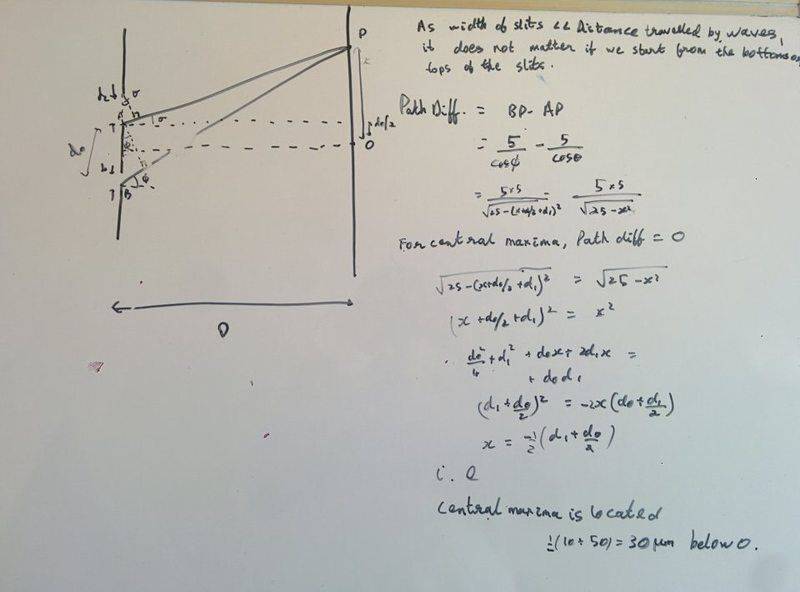 As width of slits << Distance travelled by waves,
it does not matter if we start from the bottoms or
tops of the slits.
Path Diff. = BP - AP
= 5/cosϕ - 5/cosθ
= 5×5/√25-(x+d0/2+d1)² - 5×5/√25-x²
For central maxima, Path diff = 0
√25-(x+d0/2+d1)² = √25-x²
(x+d0/2+d1)² = x²
d0²/4 + d1² + d0x + 2d1x =
+ d0d1
(d1+d0/2)² = -2x(d0+d1/2)
x = -1/2(d1+d0/2)
i.e
Central maxima is located
1/2(10+50) = 30 μm below O.
P
x
d0/2
O
d2
σ
T
σ
d0
B
ϕ
D